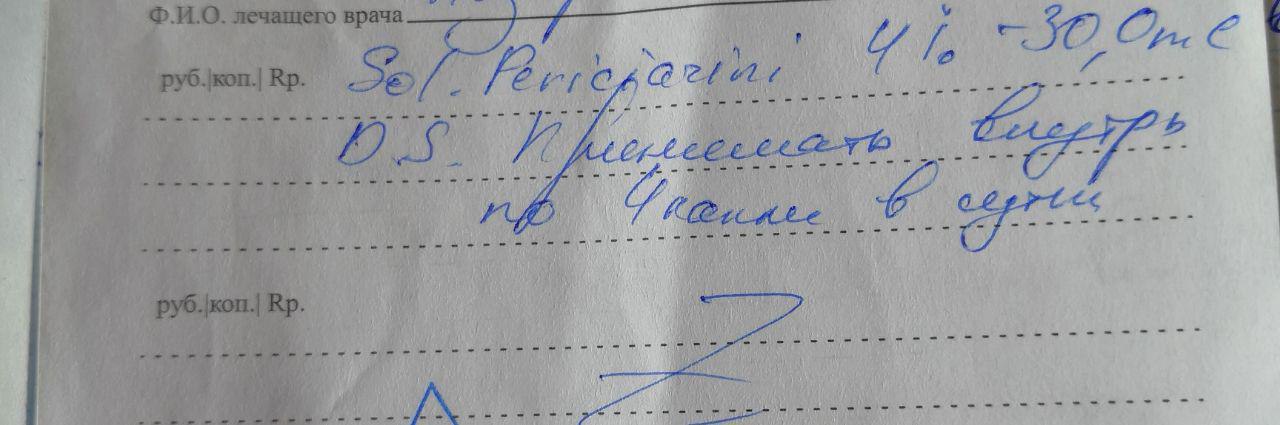 Ф.И.О. лечащего врача
руб.|коп.| Rp. Sol. Periciazini 4% - 30,0 ml
D.S. Принимать внутрь
по 4 капли в сутки
руб.|коп.| Rp.